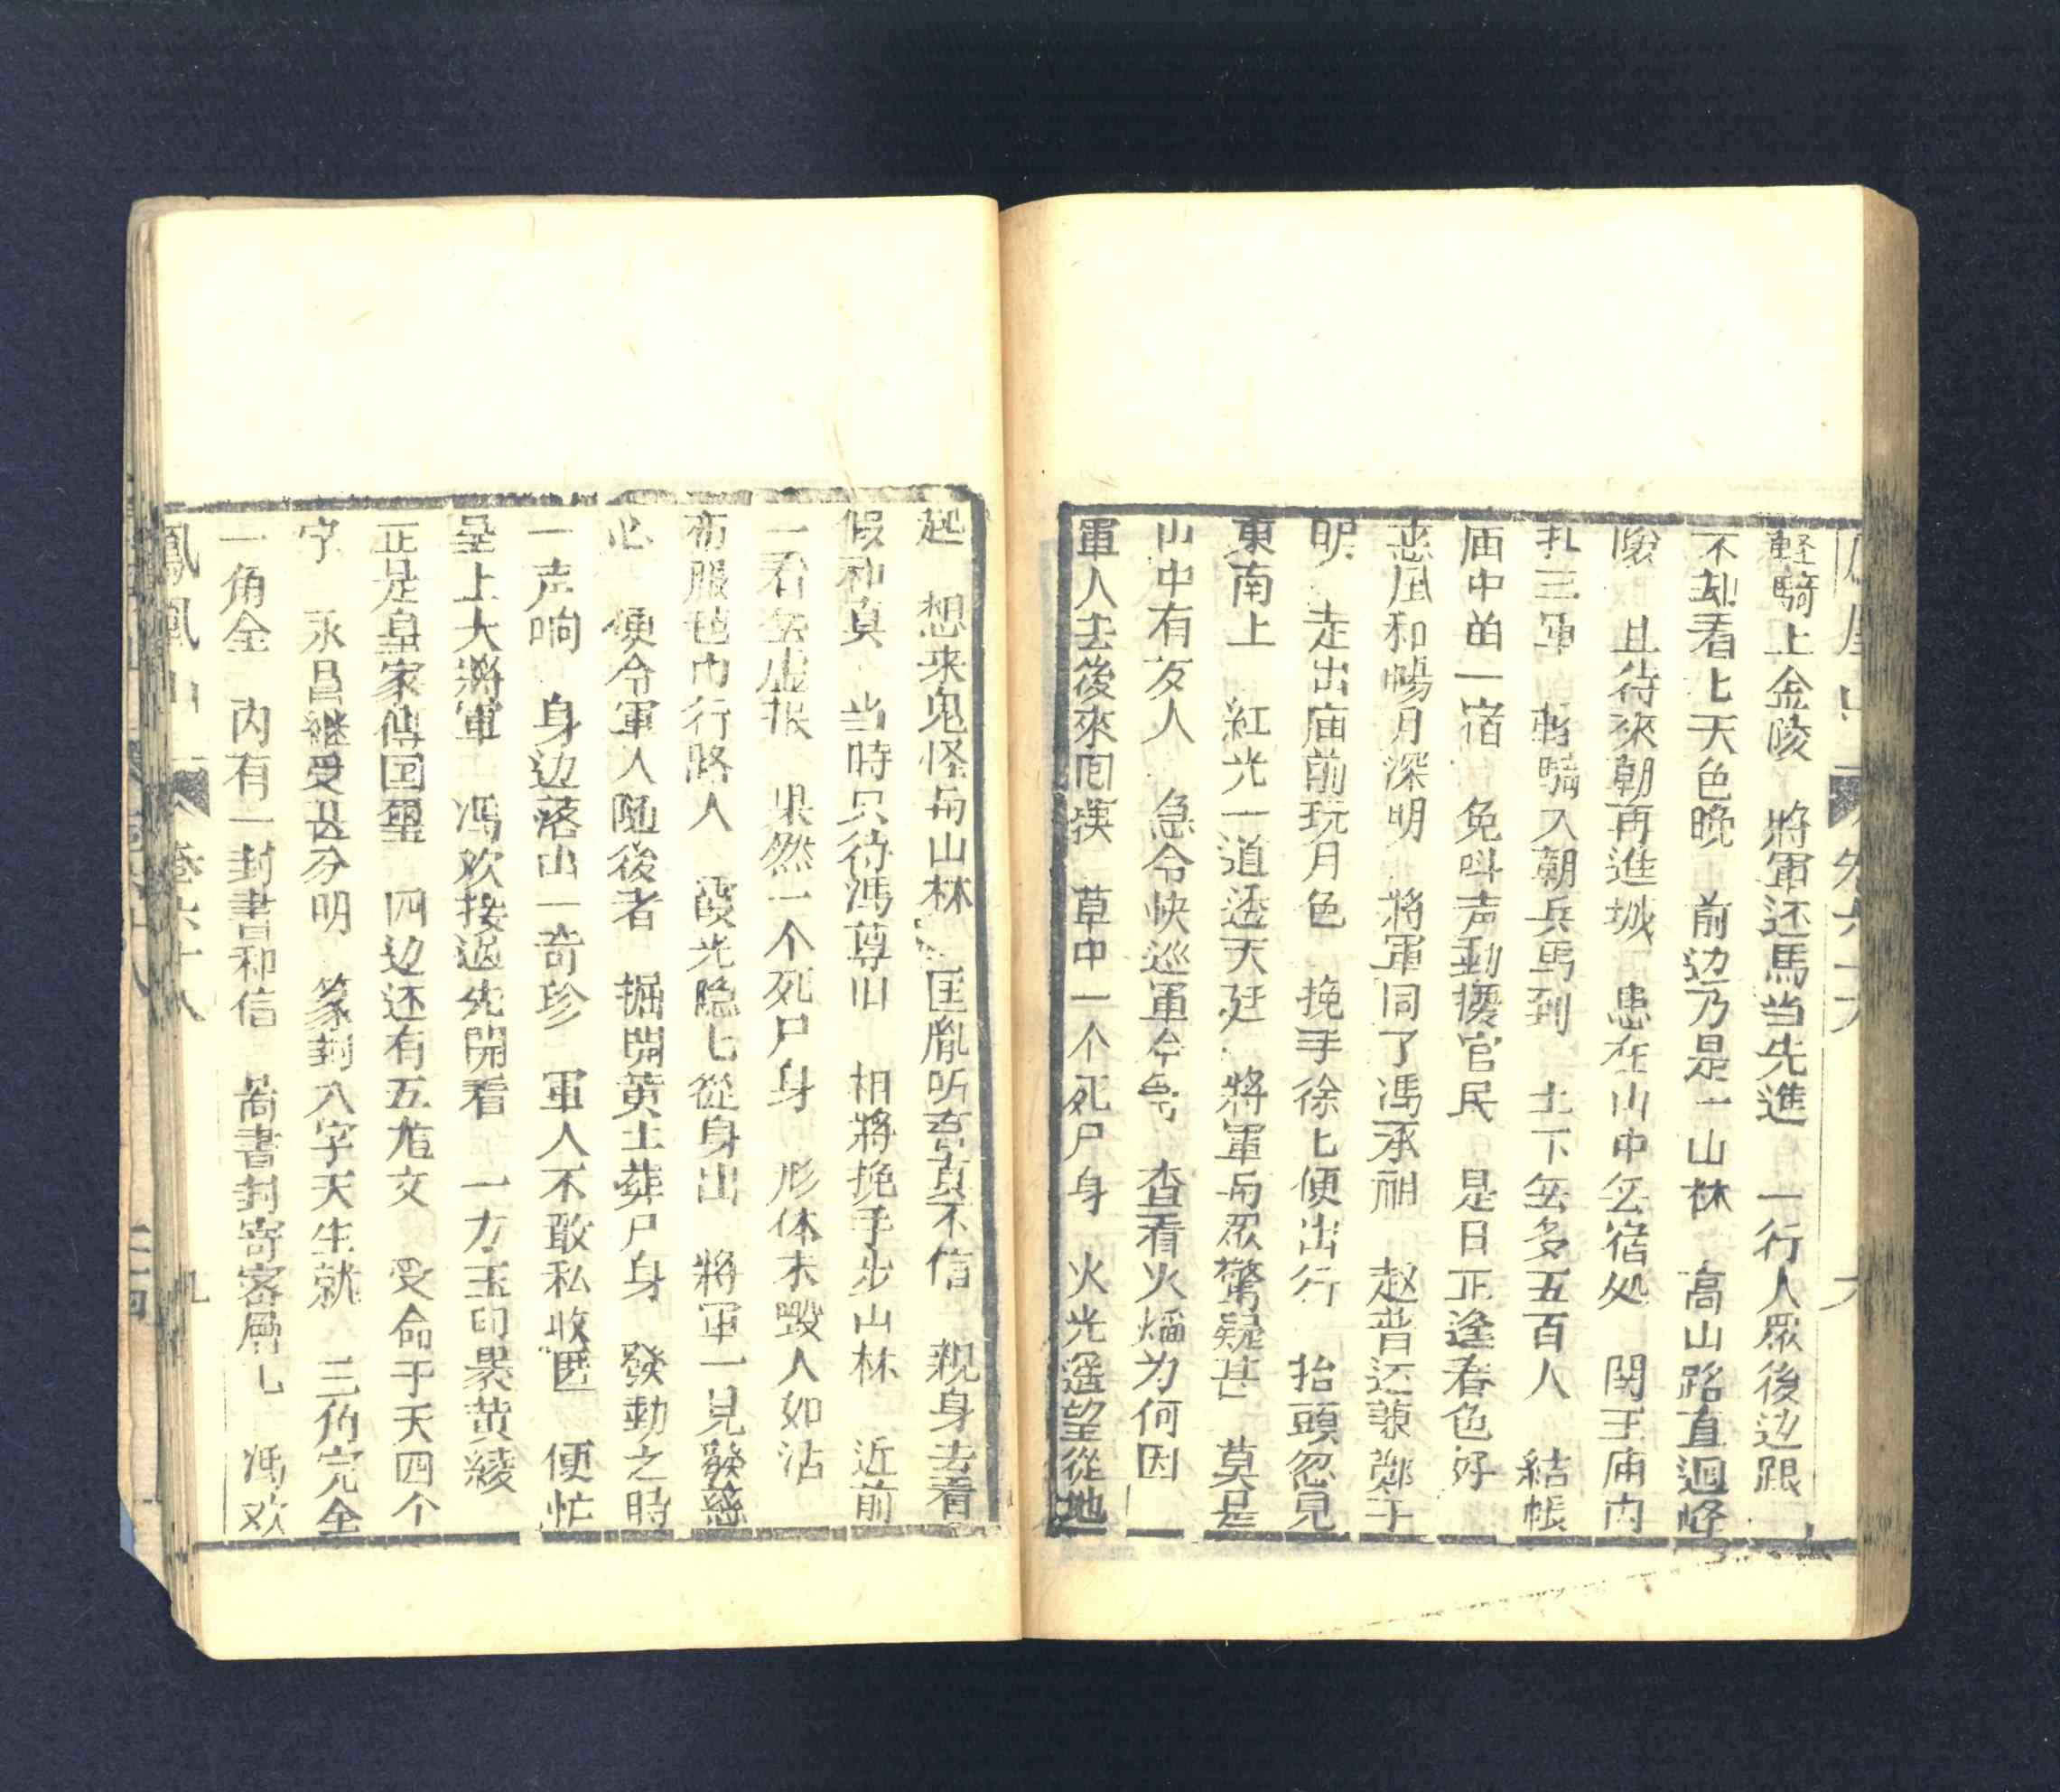 輕騎上金陵 將軍还馬当先進 一行人眾後边跟
不刼看匕天色晚 前边乃是一山林 高山路直迴峰
且待來朝再進城 患在山中矢宿処 関王庙内
扎三軍 輕騎入朝兵馬到 士下矢多五百人 結帳
庙中苗一宿 免呌声動擾官民 是日正逢春色好
恵風和暢月深明 將軍同了馮承祖 赵普还兼鄭子
明 走出庙前玩月色 挽手徐匕便出行 抬頭忽見
東南上 紅光一道透天廷 將軍甪眾驚疑甚 莫是
山中有友人 急令快巡軍令号 查看火熖为何因
軍人去後來囘揍 草中一个死尸身 火光遥望從地
起 想来鬼怪甪山林 匡胤听言真不信 親身去看
假和真 当時只待馮尊旧 相將挽手步山林 近前
一看矢虚报 果然一个死尸身 形体未毀人如沾
布服芭巾行路人 霞光隐匕從身出 將軍一見發慈
心 便令軍人随後者 掘開黄土葬尸身 發動之時
一声响 身边落出一奇珍 軍人不敢私收匿 便忙
呈上大將軍 馮欢接過先開看 一方玉印累黄綾
正是皇家傳国璽 四边还有五龙文 受命于天四个
字 永昌継受甚分明 篆封八字天生就 三伯完全
一角全 内有一封書和信 啚書封寄客層匕 馮欢
鳳凰山 卷六十八 九